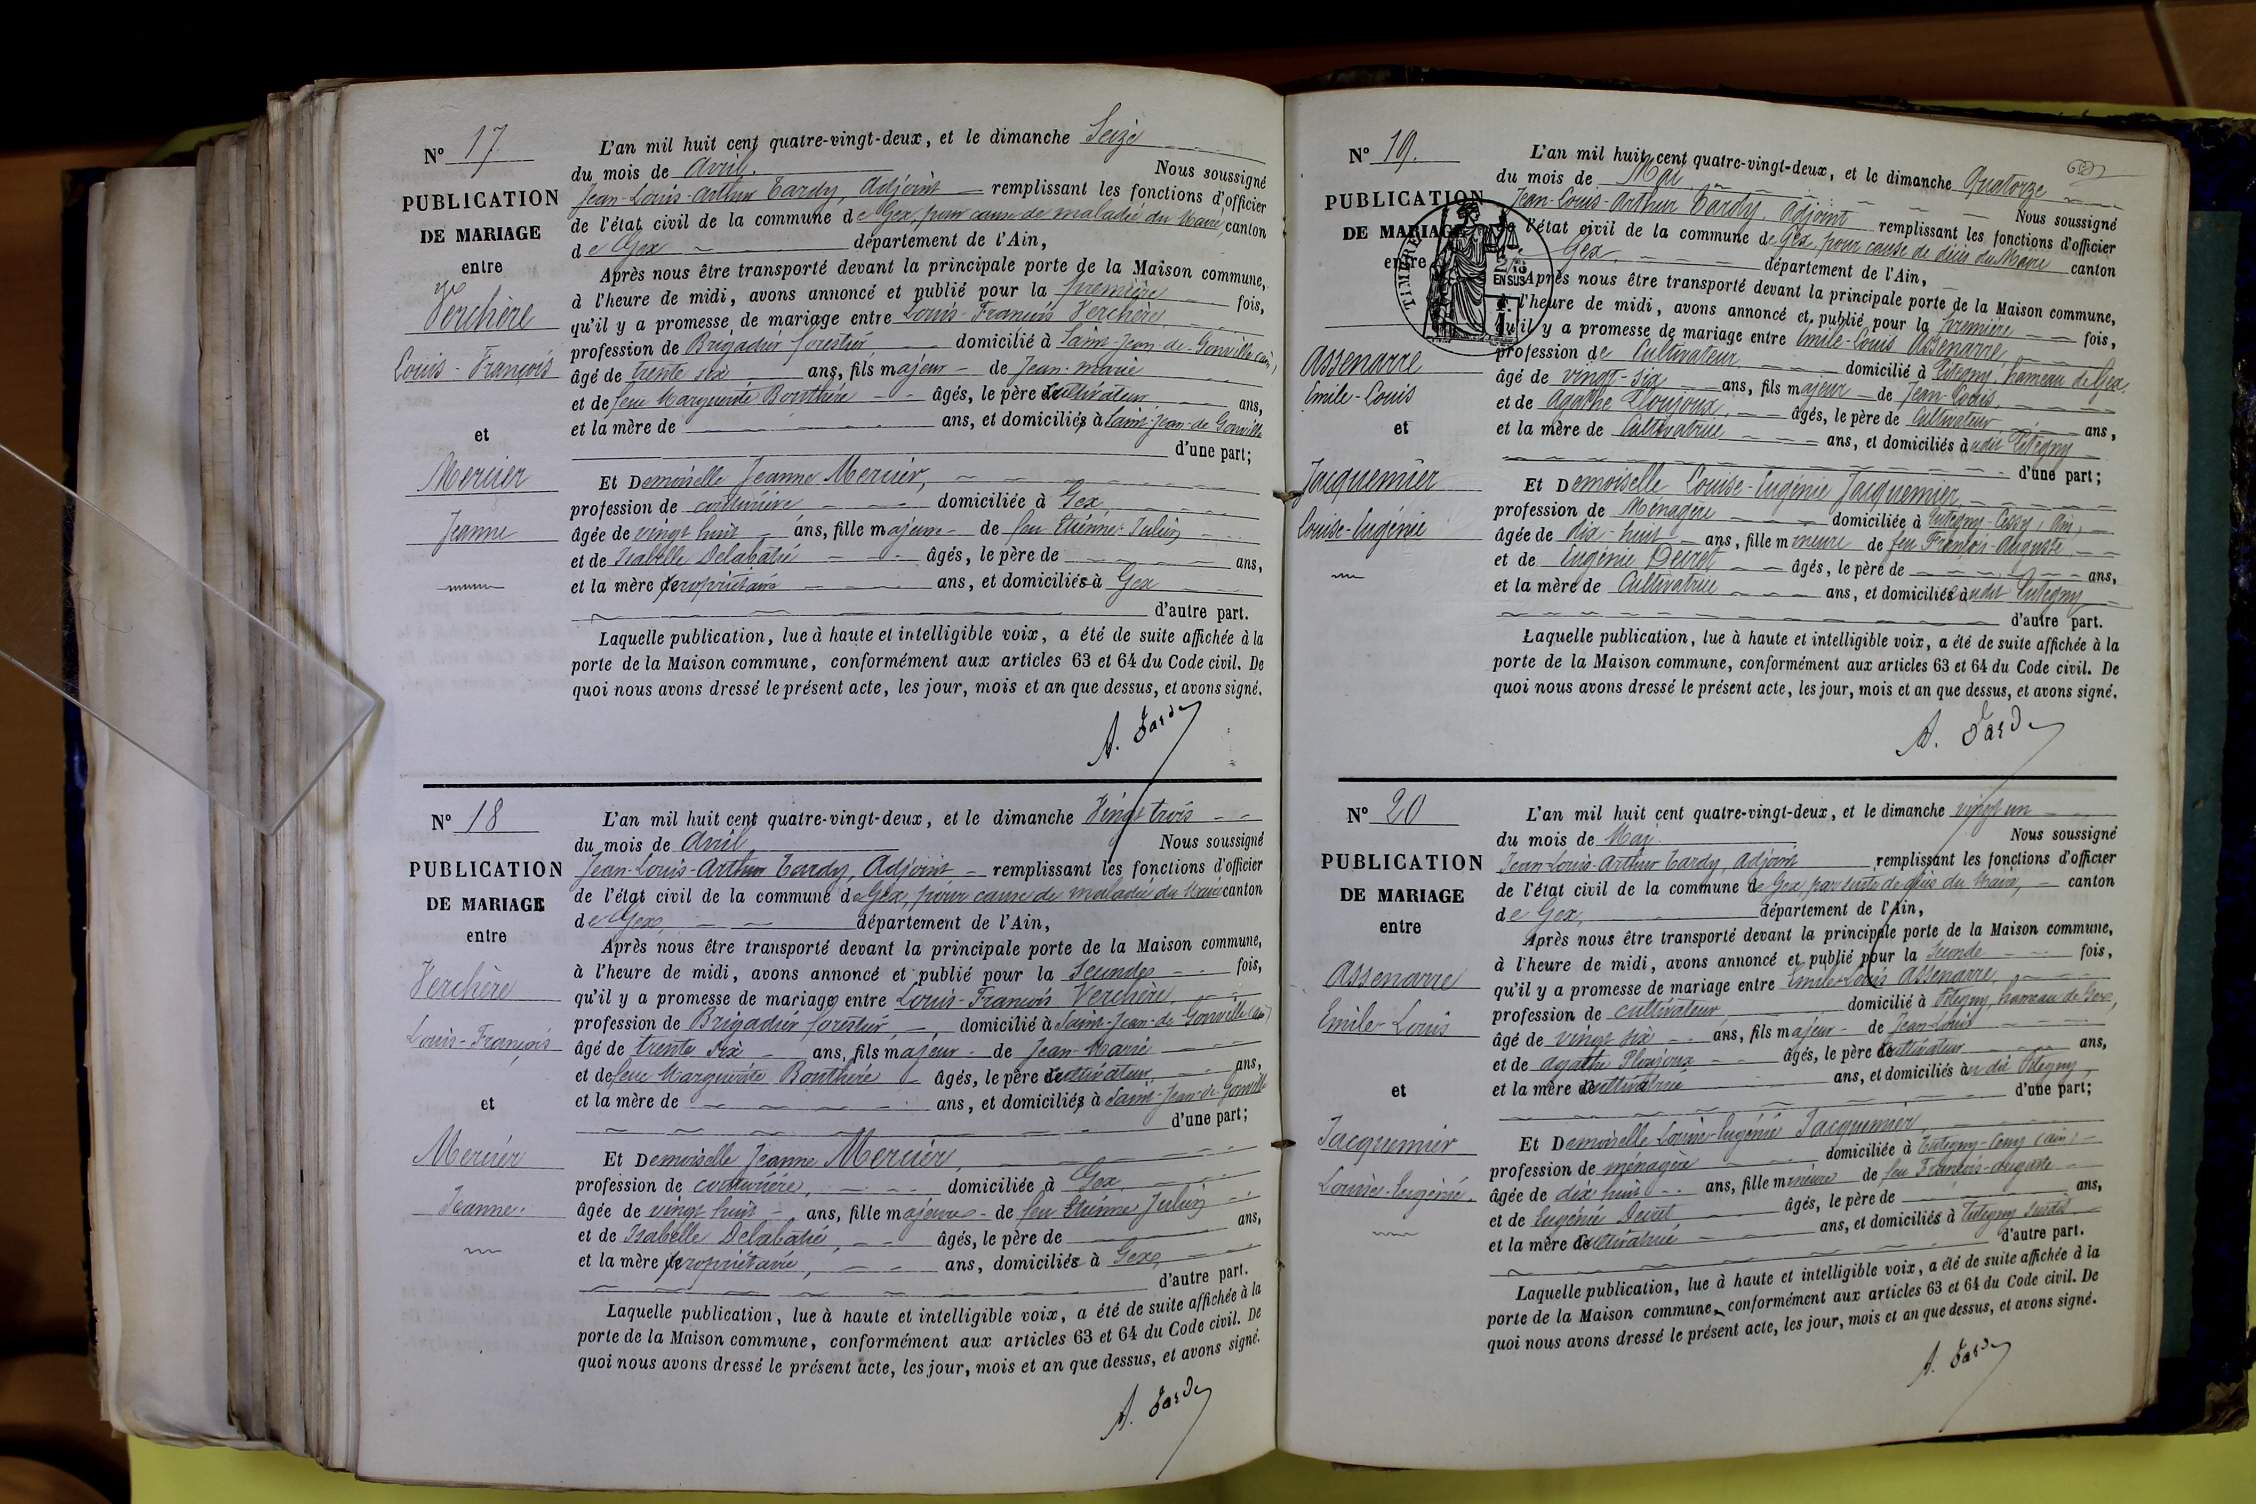 N° 17
PUBLICATION
DE MARIAGE
entre
Verchère
Louis-François
et
Mercier
Jeanne
L'an mil huit cent quatre-vingt-deux, et le dimanche Seize
du mois de Avril. Nous soussigné
Jean-Louis-Arthur Tardy, Adjoint remplissant les fonctions d'officier
de l'état civil de la commune de Gex, pour cause de maladie du Maire, canton
de Gex département de l'Ain,
Après nous être transporté devant la principale porte de la Maison commune,
à l'heure de midi, avons annoncé et publié pour la première fois,
qu'il y a promesse de mariage entre Louis-François Verchère,
profession de Brigadier forestier domicilié à Saint-Jean-de-Gonville (Ain)
âgé de trente six ans, fils majeur de Jean-Marie
et de feue Marguerite Bouthéré âgés, le père cultivateur ans,
et la mère de ans, et domiciliés à Saint-Jean-de Gonville
d'une part;
Et Demoiselle Jeanne Mercier,
profession de couturière domiciliée à Gex
âgée de vingt huit ans, fille majeure de feu Etienne Julien
et de Isabelle Delabatie âgés, le père de ans,
et la mère propriétaire ans, et domiciliés à Gex
d'autre part.
Laquelle publication, lue à haute et intelligible voix, a été de suite affichée à la
porte de la Maison commune, conformément aux articles 63 et 64 du Code civil. De
quoi nous avons dressé le présent acte, les jour, mois et an que dessus, et avons signé.
A. Tardy
N° 18
PUBLICATION
DE MARIAGE
entre
Verchère
Louis-François
et
Mercier
Jeanne.
L'an mil huit cent quatre-vingt-deux, et le dimanche Vingt trois
du mois de Avril Nous soussigné
Jean-Louis-Arthur Tardy, Adjoint remplissant les fonctions d'officier
de l'état civil de la commune de Gex, pour cause de maladie du Maire canton
de Gex, département de l'Ain,
Après nous être transporté devant la principale porte de la Maison commune,
à l'heure de midi, avons annoncé et publié pour la Seconde fois,
qu'il y a promesse de mariage entre Louis-François Verchère,
profession de Brigadier forestier, domicilié à Saint-Jean-de Gonville (Ain)
âgé de trente six ans, fils majeur de Jean-Marie
et de feue Marguerite Bouthéré âgés, le père cultivateur ans,
et la mère de ans, et domiciliés à Saint-Jean-de Gonville
d'une part;
Et Demoiselle Jeanne Mercier,
profession de couturière, domiciliée à Gex
âgée de vingt huit ans, fille majeure de feu Etienne Julien
et de Isabelle Delabatie, âgés, le père de ans,
et la mère propriétaire, ans, domiciliés à Gex,
d'autre part.
Laquelle publication, lue à haute et intelligible voix, a été de suite affichée à la
porte de la Maison commune, conformément aux articles 63 et 64 du Code civil. De
quoi nous avons dressé le présent acte, les jour, mois et an que dessus, et avons signé.
A. Tardy
N° 19.
PUBLICATION
DE MARIAGE
entre
TIMBRE
EN SUS
Assenarre
Emile-Louis
et
Jacquemier
Louise-Eugénie
L'an mil huit cent quatre-vingt-deux, et le dimanche Quatorze
du mois de Mai Nous soussigné
Jean-Louis-Arthur Tardy, Adjoint remplissant les fonctions d'officier
de l'état civil de la commune de Gex, pour cause de décès du Maire canton
de Gex, département de l'Ain,
Après nous être transporté devant la principale porte de la Maison commune,
à l'heure de midi, avons annoncé et publié pour la première fois,
qu'il y a promesse de mariage entre Emile-Louis Assenarre
profession de Cultivateur domicilié à Pitegny, hameau de Gex,
âgé de vingt-six ans, fils majeur de Jean-Louis
et de Agathe Ploujoux, âgés, le père de Cultivateur ans,
et la mère de Cultivatrice ans, et domiciliés à udit Pitegny
d'une part;
Et Demoiselle Louise-Eugénie Jacquemier
profession de Ménagère domiciliée à Tutegny-Cessy (Ain)
âgée de dix-huit ans, fille mineure de feu François-Auguste
et de Eugénie Decret âgés, le père de ans,
et la mère de Cultivatrice ans, et domiciliés à udit Tutegny
d'autre part.
Laquelle publication, lue à haute et intelligible voix, a été de suite affichée à la
porte de la Maison commune, conformément aux articles 63 et 64 du Code civil. De
quoi nous avons dressé le présent acte, les jour, mois et an que dessus, et avons signé.
A. Tardy
N° 20
PUBLICATION
DE MARIAGE
entre
Assenarre
Emile-Louis
et
Jacquemier
Louise-Eugénie.
L'an mil huit cent quatre-vingt-deux, et le dimanche vingt un
du mois de Mai Nous soussigné
Jean-Louis-Arthur Tardy, Adjoint remplissant les fonctions d'officier
de l'état civil de la commune de Gex, par suite de décès du Maire, canton
de Gex, département de l'Ain,
Après nous être transporté devant la principale porte de la Maison commune,
à l'heure de midi, avons annoncé et publié pour la Seconde fois,
qu'il y a promesse de mariage entre Emile-Louis Assenarre,
profession de cultivateur domicilié à Pitegny, hameau de Gex,
âgé de vingt six ans, fils majeur de Jean-Louis
et de Agathe Ploujoux âgés, le père cultivateur ans,
et la mère cultivatrice ans, et domiciliés à udit Pitegny,
d'une part;
Et Demoiselle Louise-Eugénie Jacquemier,
profession de ménagère domiciliée à Tutegny-Cessy (Ain)
âgée de dix huit ans, fille mineure de feu François-Auguste
et de Eugénie Decret âgés, le père de ans,
et la mère cultivatrice ans, et domiciliés à Tutegny susdit.
d'autre part.
Laquelle publication, lue à haute et intelligible voix, a été de suite affichée à la
porte de la Maison commune, conformément aux articles 63 et 64 du Code civil. De
quoi nous avons dressé le présent acte, les jour, mois et an que dessus, et avons signé.
A. Tardy